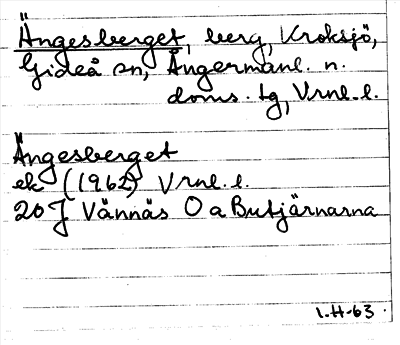 Ängesberget, berg, Kroksjö,
Gideå sn, Ångermanl. n.
doms. tg, Vrnl. l.
Ängesberget
ek (1962) Vrnl. l.
20 J Vännäs 0 a Butjärnarna
1.H-63.